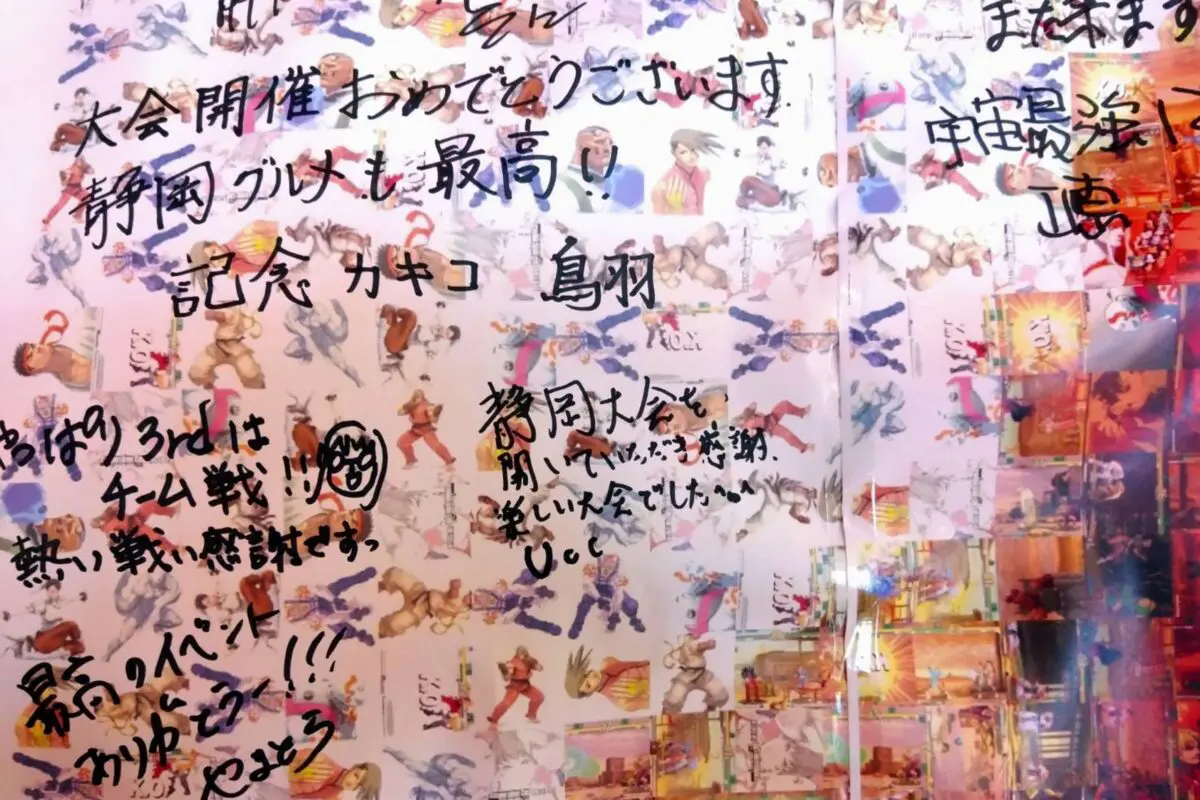 また来ます
大会開催おめでとうございます
静岡グルメも最高!!
記念カキコ 鳥羽
宇宙最強
やはり3rdは
チーム戦!!
熱い戦い感謝ですっ
静岡大会を
開いていただき感謝、
楽しい大会でした^o^
Ucc
最高のイベント
ありがとうー!!!
やまとろ
K.O.